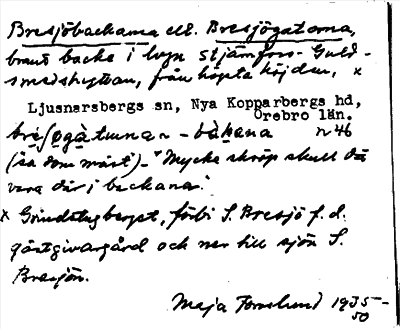 Bresjöbackarna ell. Bresjögatorna,
brant backe i vägen Stjärnfors - Guld-
smedshyttan, från höpta höjden, x
Ljusnarsbergs sn, Nya Kopparbergs hd,
Örebro län.
bre/ogàtuna ~ -bàkana n 46
(sa dom mäst) - "Mycke skröp skull dä
vara där i backana."
x Grindstugberget, förbi S. Bresjö f.d.
gästgivargård och ner till sjön S.
Bresjön.
Maja Forsslund 1935-
50